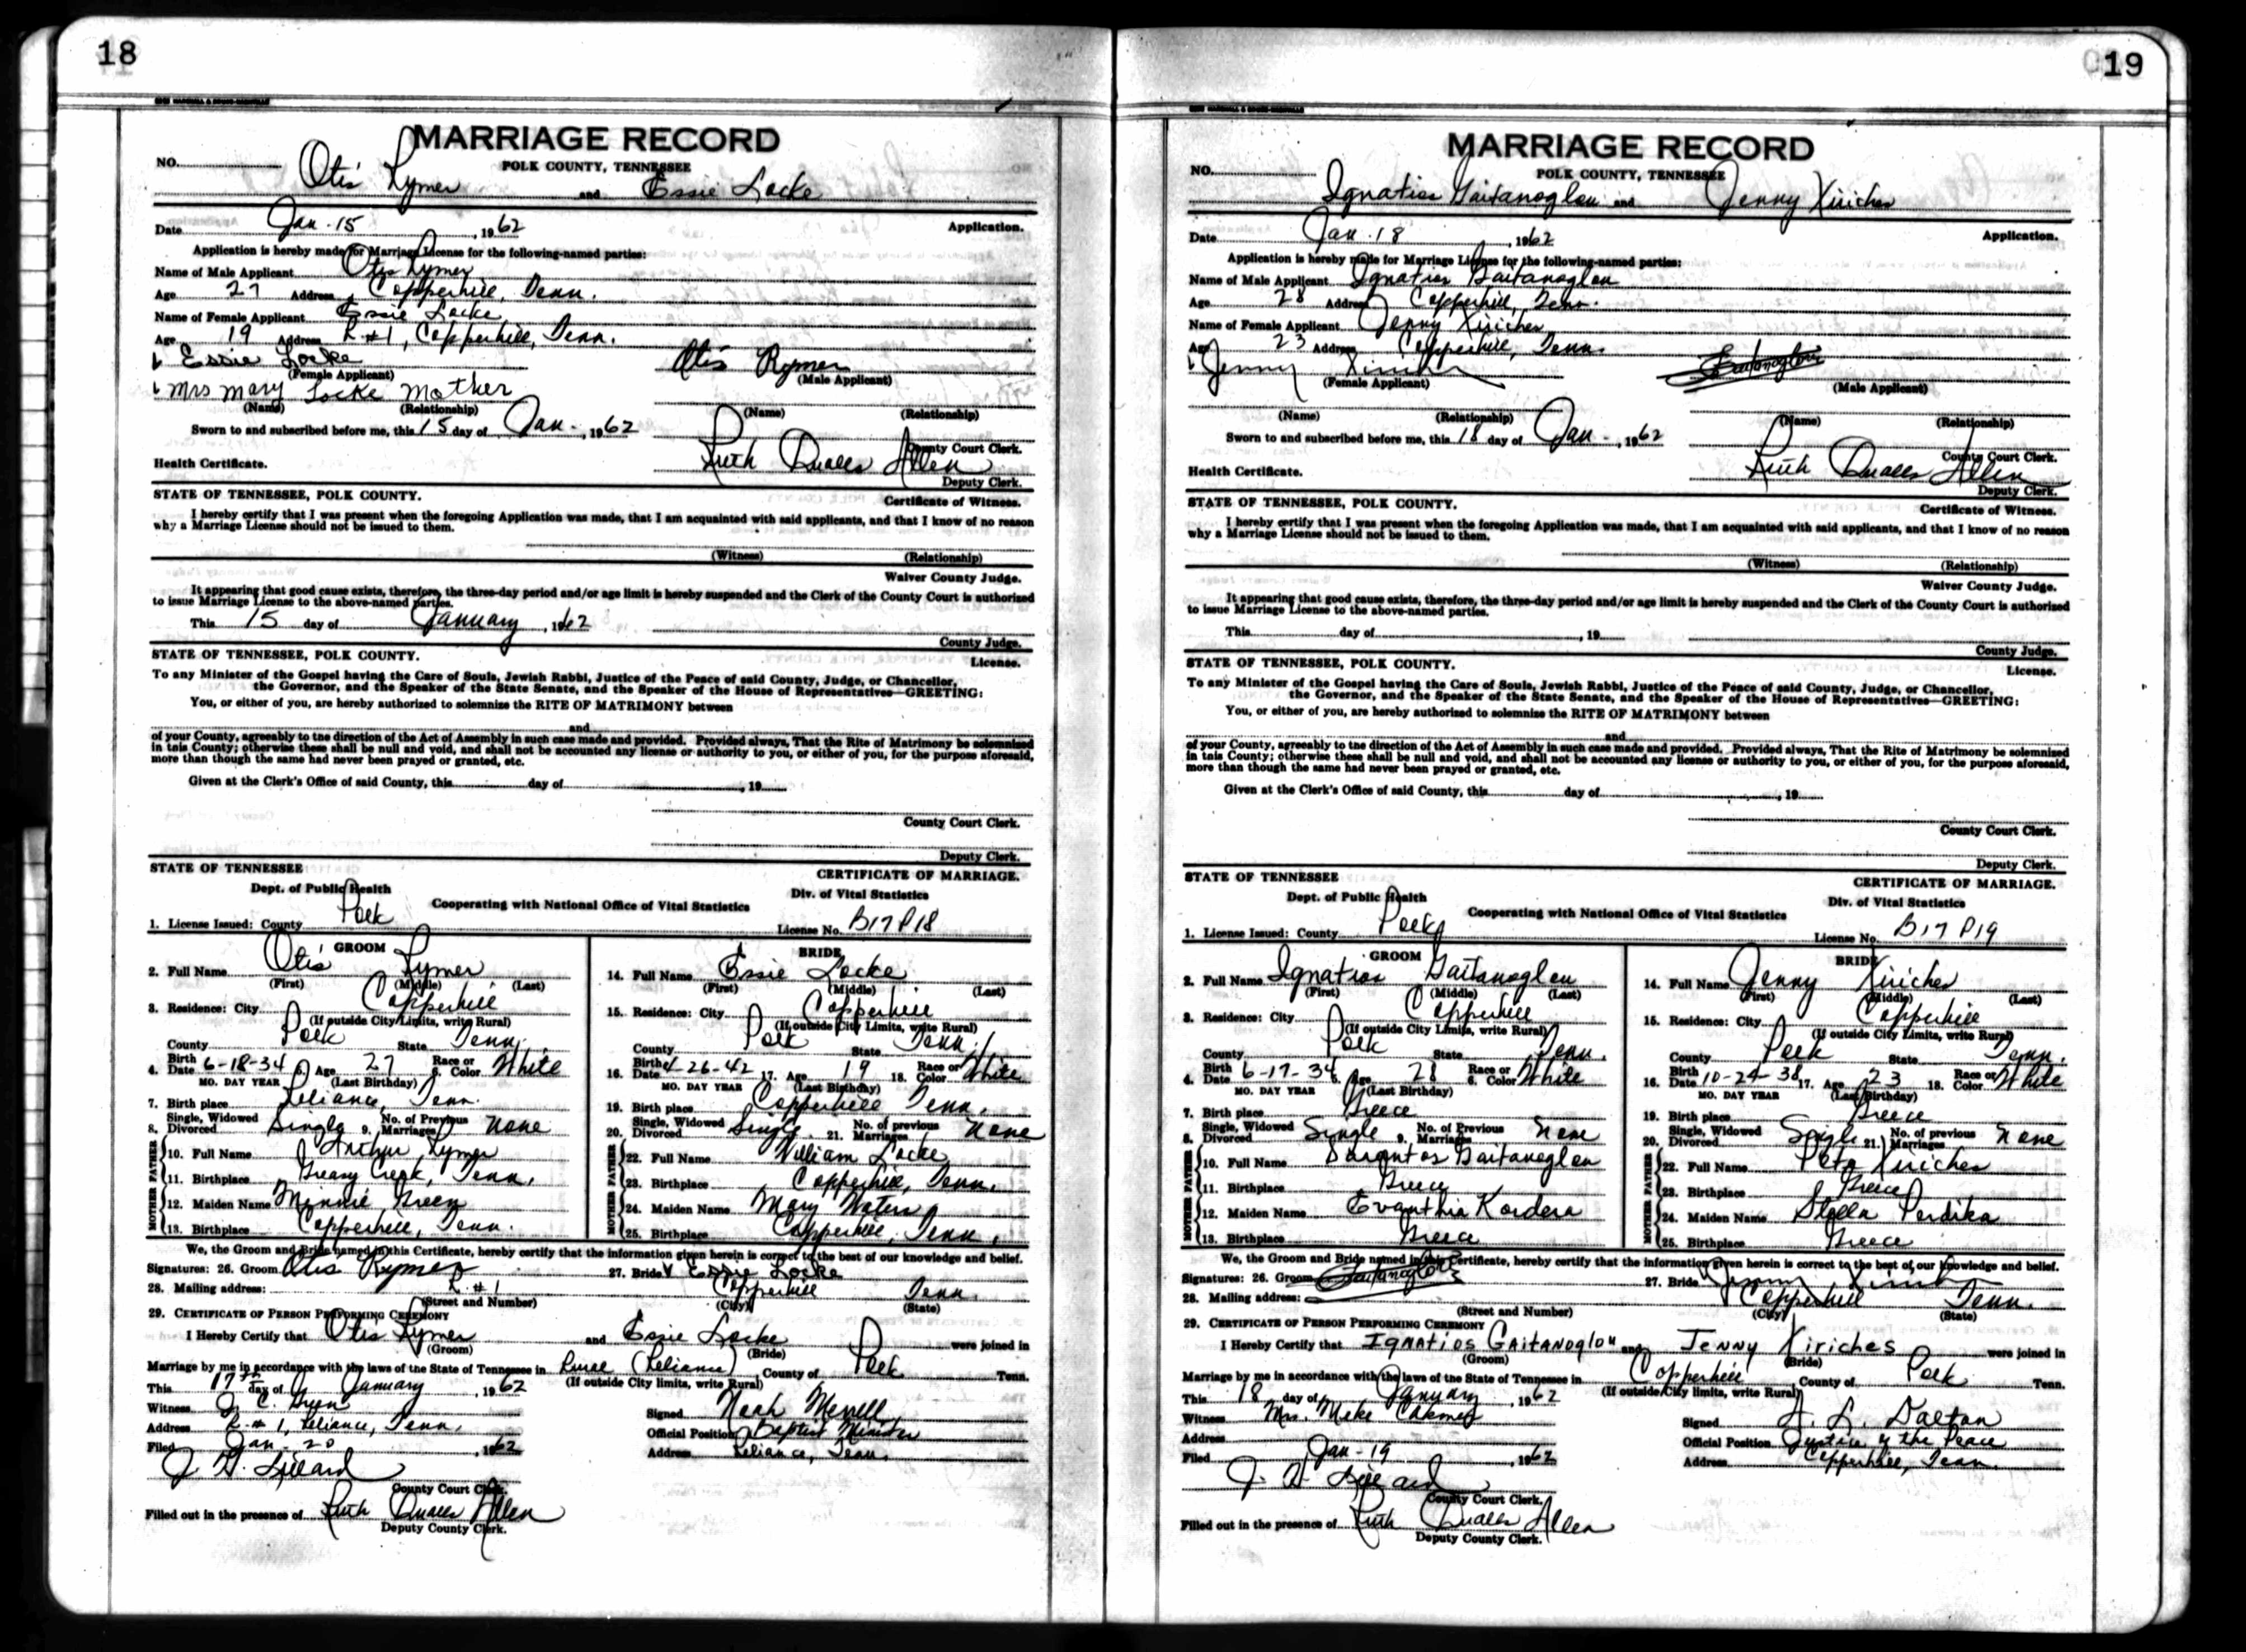 18
MARRIAGE RECORD
NO.
POLK COUNTY, TENNESSEE
Otis Rymer and Essie Locke
Date Jan. 15, 1962 Application.
Application is hereby made for Marriage License for the following-named parties:
Name of Male Applicant Otis Rymer
Age 27 Address Copperhill, Tenn.
Name of Female Applicant Essie Locke
Age 19 Address R #1, Copperhill, Tenn.
Essie Locke Otis Rymer
(Female Applicant) (Male Applicant)
Mrs Mary Locke Mother
(Name) (Relationship) (Name) (Relationship)
Sworn to and subscribed before me, this 15 day of Jan., 1962
County Court Clerk.
Health Certificate. Ruth Qualls Allen
Deputy Clerk.
STATE OF TENNESSEE, POLK COUNTY. Certificate of Witness.
I hereby certify that I was present when the foregoing Application was made, that I am acquainted with said applicants, and that I know of no reason
why a Marriage License should not be issued to them.
(Witness) (Relationship)
Waiver County Judge.
It appearing that good cause exists, therefore, the three-day period and/or age limit is hereby suspended and the Clerk of the County Court is authorized
to issue Marriage License to the above-named parties.
This 15 day of January, 1962
County Judge.
STATE OF TENNESSEE, POLK COUNTY. License.
To any Minister of the Gospel having the Care of Souls, Jewish Rabbi, Justice of the Peace of said County, Judge, or Chancellor,
the Governor, and the Speaker of the State Senate, and the Speaker of the House of Representatives—GREETING:
You, or either of you, are hereby authorized to solemnize the RITE OF MATRIMONY between
and
of your County, agreeably to the direction of the Act of Assembly in such case made and provided. Provided always, That the Rite of Matrimony be solemnized
in this County; otherwise these shall be null and void, and shall not be accounted any license or authority to you, or either of you, for the purpose aforesaid,
more than though the same had never been prayed or granted, etc.
Given at the Clerk's Office of said County, this day of , 19
County Court Clerk.
Deputy Clerk.
STATE OF TENNESSEE CERTIFICATE OF MARRIAGE.
Dept. of Public Health Div. of Vital Statistics
Cooperating with National Office of Vital Statistics
1. License Issued: County Polk License No. B17 P18
GROOM
2. Full Name Otis Rymer
(First) (Middle) (Last)
3. Residence: City Copperhill
(If outside City Limits, write Rural)
County Polk State Tenn.
4. Birth Date 6-18-34 5. Age 27 6. Race or Color White
MO. DAY YEAR (Last Birthday)
7. Birth place Reliance, Tenn.
8. Single, Widowed Divorced Single 9. No. of Previous Marriages None
FATHER
10. Full Name Arthur Rymer
11. Birthplace Greasy Creek, Tenn.
MOTHER
12. Maiden Name Minnie Green
13. Birthplace Copperhill, Tenn.
BRIDE
14. Full Name Essie Locke
(First) (Middle) (Last)
15. Residence: City Copperhill
(If outside City Limits, write Rural)
County Polk State Tenn.
16. Birth Date 4-26-42 17. Age 19 18. Race or Color White
MO. DAY YEAR (Last Birthday)
19. Birth place Copperhill Tenn.
20. Single, Widowed Divorced Single 21. No. of previous Marriages None
FATHER
22. Full Name William Locke
23. Birthplace Copperhill, Tenn.
MOTHER
24. Maiden Name Mary Waters
25. Birthplace Copperhill, Tenn.
We, the Groom and Bride named in this Certificate, hereby certify that the information given herein is correct to the best of our knowledge and belief.
Signatures: 26. Groom Otis Rymer 27. Bride Essie Locke
28. Mailing address: R #1 Copperhill Tenn.
(Street and Number) (City) (State)
29. CERTIFICATE OF PERSON PERFORMING CEREMONY
I Hereby Certify that Otis Rymer and Essie Locke were joined in
(Groom) (Bride)
Marriage by me in accordance with the laws of the State of Tennessee in Rural (Reliance) County of Polk Tenn.
(If outside City limits, write Rural)
This 17th day of January, 1962
Witness J. C. Signed Noah Merrell
Address R. #1, Reliance, Tenn. Official Position Baptist Minister
Filed Jan. 20, 1962 Address Reliance, Tenn.
J. H. Lillard
County Court Clerk.
Filled out in the presence of Ruth Qualls Allen
Deputy County Clerk.
19
MARRIAGE RECORD
NO.
POLK COUNTY, TENNESSEE
Ignatios Gaitanoglou and Jenny Xiriches
Date Jan. 18, 1962 Application.
Application is hereby made for Marriage License for the following-named parties:
Name of Male Applicant Ignatios Gaitanoglou
Age 28 Address Copperhill, Tenn.
Name of Female Applicant Jenny Xiriches
Age 23 Address Copperhill, Tenn.
Jenny
(Female Applicant) (Male Applicant)
(Name) (Relationship) (Name) (Relationship)
Sworn to and subscribed before me, this 18 day of Jan., 1962
County Court Clerk.
Health Certificate. Ruth Qualls Allen
Deputy Clerk.
STATE OF TENNESSEE, POLK COUNTY. Certificate of Witness.
I hereby certify that I was present when the foregoing Application was made, that I am acquainted with said applicants, and that I know of no reason
why a Marriage License should not be issued to them.
(Witness) (Relationship)
Waiver County Judge.
It appearing that good cause exists, therefore, the three-day period and/or age limit is hereby suspended and the Clerk of the County Court is authorized
to issue Marriage License to the above-named parties.
This day of , 19
County Judge.
STATE OF TENNESSEE, POLK COUNTY. License.
To any Minister of the Gospel having the Care of Souls, Jewish Rabbi, Justice of the Peace of said County, Judge, or Chancellor,
the Governor, and the Speaker of the State Senate, and the Speaker of the House of Representatives—GREETING:
You, or either of you, are hereby authorized to solemnize the RITE OF MATRIMONY between
and
of your County, agreeably to the direction of the Act of Assembly in such case made and provided. Provided always, That the Rite of Matrimony be solemnized
in this County; otherwise these shall be null and void, and shall not be accounted any license or authority to you, or either of you, for the purpose aforesaid,
more than though the same had never been prayed or granted, etc.
Given at the Clerk's Office of said County, this day of , 19
County Court Clerk.
Deputy Clerk.
STATE OF TENNESSEE CERTIFICATE OF MARRIAGE.
Dept. of Public Health Div. of Vital Statistics
Cooperating with National Office of Vital Statistics
1. License Issued: County Polk License No. B17 P19
GROOM
2. Full Name Ignatios Gaitanoglou
(First) (Middle) (Last)
3. Residence: City Copperhill
(If outside City Limits, write Rural)
County Polk State Tenn.
4. Birth Date 6-17-34 5. Age 28 6. Race or Color White
MO. DAY YEAR (Last Birthday)
7. Birth place Greece
8. Single, Widowed Divorced Single 9. No. of Previous Marriages None
FATHER
10. Full Name Gaitanoglou
11. Birthplace Greece
MOTHER
12. Maiden Name Evanthia Kordera
13. Birthplace Greece
BRIDE
14. Full Name Jenny Xiriches
(First) (Middle) (Last)
15. Residence: City Copperhill
(If outside City Limits, write Rural)
County Polk State Tenn.
16. Birth Date 10-24-38 17. Age 23 18. Race or Color White
MO. DAY YEAR (Last Birthday)
19. Birth place Greece
20. Single, Widowed Divorced Single 21. No. of previous Marriages None
FATHER
22. Full Name Pete Xiriches
23. Birthplace Greece
MOTHER
24. Maiden Name Stella Perdika
25. Birthplace Greece
We, the Groom and Bride named in this Certificate, hereby certify that the information given herein is correct to the best of our knowledge and belief.
Signatures: 26. Groom 27. Bride Jenny
28. Mailing address: Copperhill Tenn.
(Street and Number) (City) (State)
29. CERTIFICATE OF PERSON PERFORMING CEREMONY
I Hereby Certify that Ignatios Gaitanoglou and Jenny Xiriches were joined in
(Groom) (Bride)
Marriage by me in accordance with the laws of the State of Tennessee in Copperhill County of Polk Tenn.
(If outside City limits, write Rural)
This 18 day of January, 1962
Witness Mrs. Mike Signed A. L. Dalton
Address Official Position Justice of the Peace
Filed Jan. 19, 1962 Address Copperhill, Tenn.
J. H. Lillard
County Court Clerk.
Filled out in the presence of Ruth Qualls Allen
Deputy County Clerk.